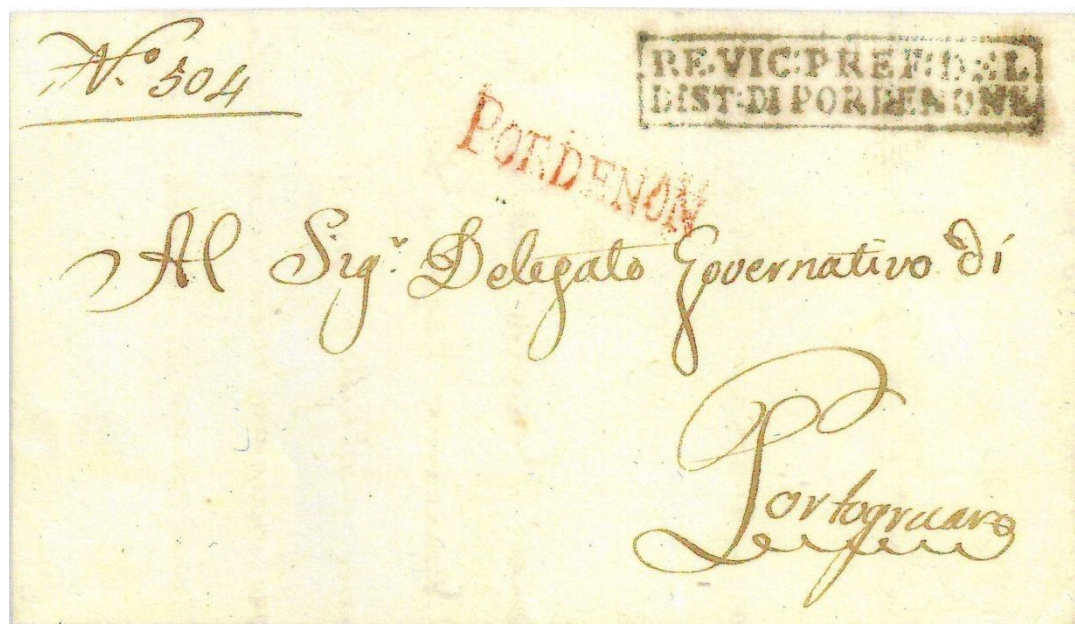 N.º 504
RE.VIC:PREF:DEL
DIST:DI PORDENONE
PORDENON
Al Sig.r Delegato Governativo di
Portogruaro